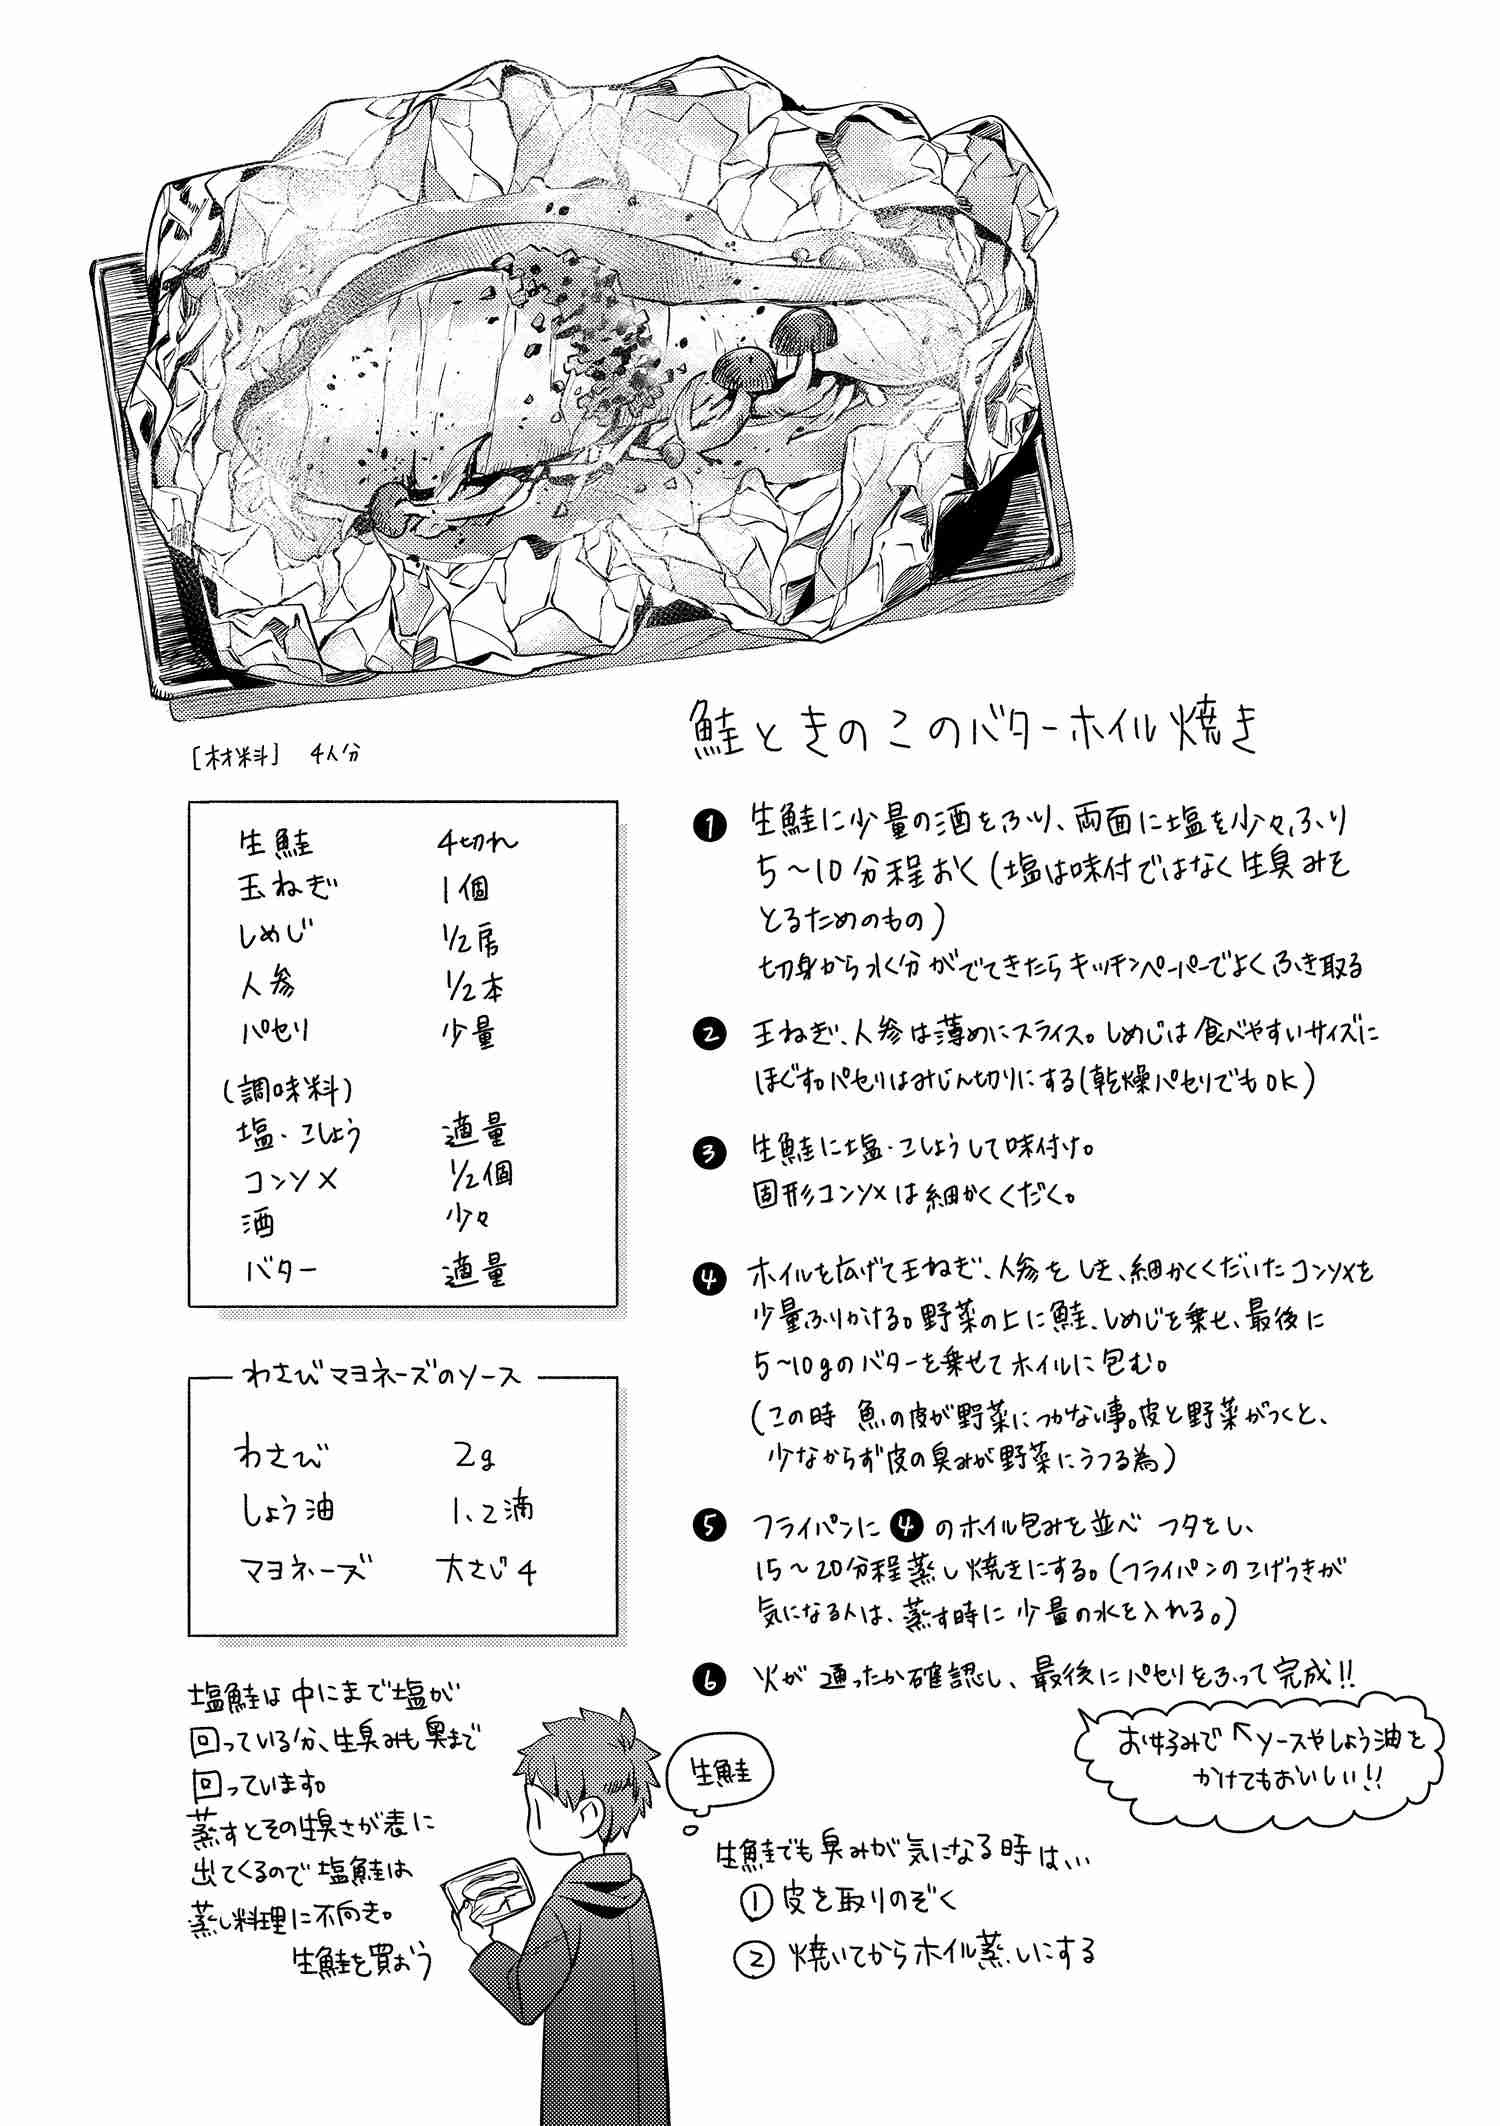 鮭ときのこのバターホイル焼き
[材料] 4人分
生鮭 4切れ
玉ねぎ 1個
しめじ 1/2房
人参 1/2本
パセリ 少量
(調味料)
塩・こしょう 適量
コンソメ 1/2個
酒 少々
バター 適量
わさびマヨネーズのソース
わさび 2g
しょう油 1、2滴
マヨネーズ 大さじ4
❶ 生鮭に少量の酒をふり、両面に塩を少々ふり
5~10分程おく(塩は味付ではなく生臭みを
とるためのもの)
切身から水分がでてきたらキッチンペーパーでよくふき取る
❷ 玉ねぎ、人参は薄めにスライス。しめじは食べやすいサイズに
ほぐす。パセリはみじん切りにする(乾燥パセリでもOK)
❸ 生鮭に塩・こしょうして味付け。
固形コンソメは細かくくだく。
❹ ホイルを広げて玉ねぎ、人参をしき、細かくくだいたコンソメを
少量ふりかける。野菜の上に鮭、しめじを乗せ、最後に
5~10gのバターを乗せてホイルに包む。
(この時 魚の皮が野菜につかない事。皮と野菜がつくと、
少なからず皮の臭みが野菜にうつる為)
❺ フライパンに❹のホイル包みを並べ フタをし、
15~20分程蒸し焼きにする。(フライパンのこげつきが
気になる人は、蒸す時に少量の水を入れる。)
❻ 火が通ったか確認し、最後にパセリをふって完成!!
お好みで↖ソースやしょう油を
かけてもおいしい!!
塩鮭は中にまで塩が
回っている分、生臭みも奥まで
回っています。
蒸すとその生臭さが表に
出てくるので塩鮭は
蒸し料理に不向き。
生鮭を買おう
生鮭
生鮭でも臭みが気になる時は、、、
① 皮を取りのぞく
② 焼いてからホイル蒸しにする